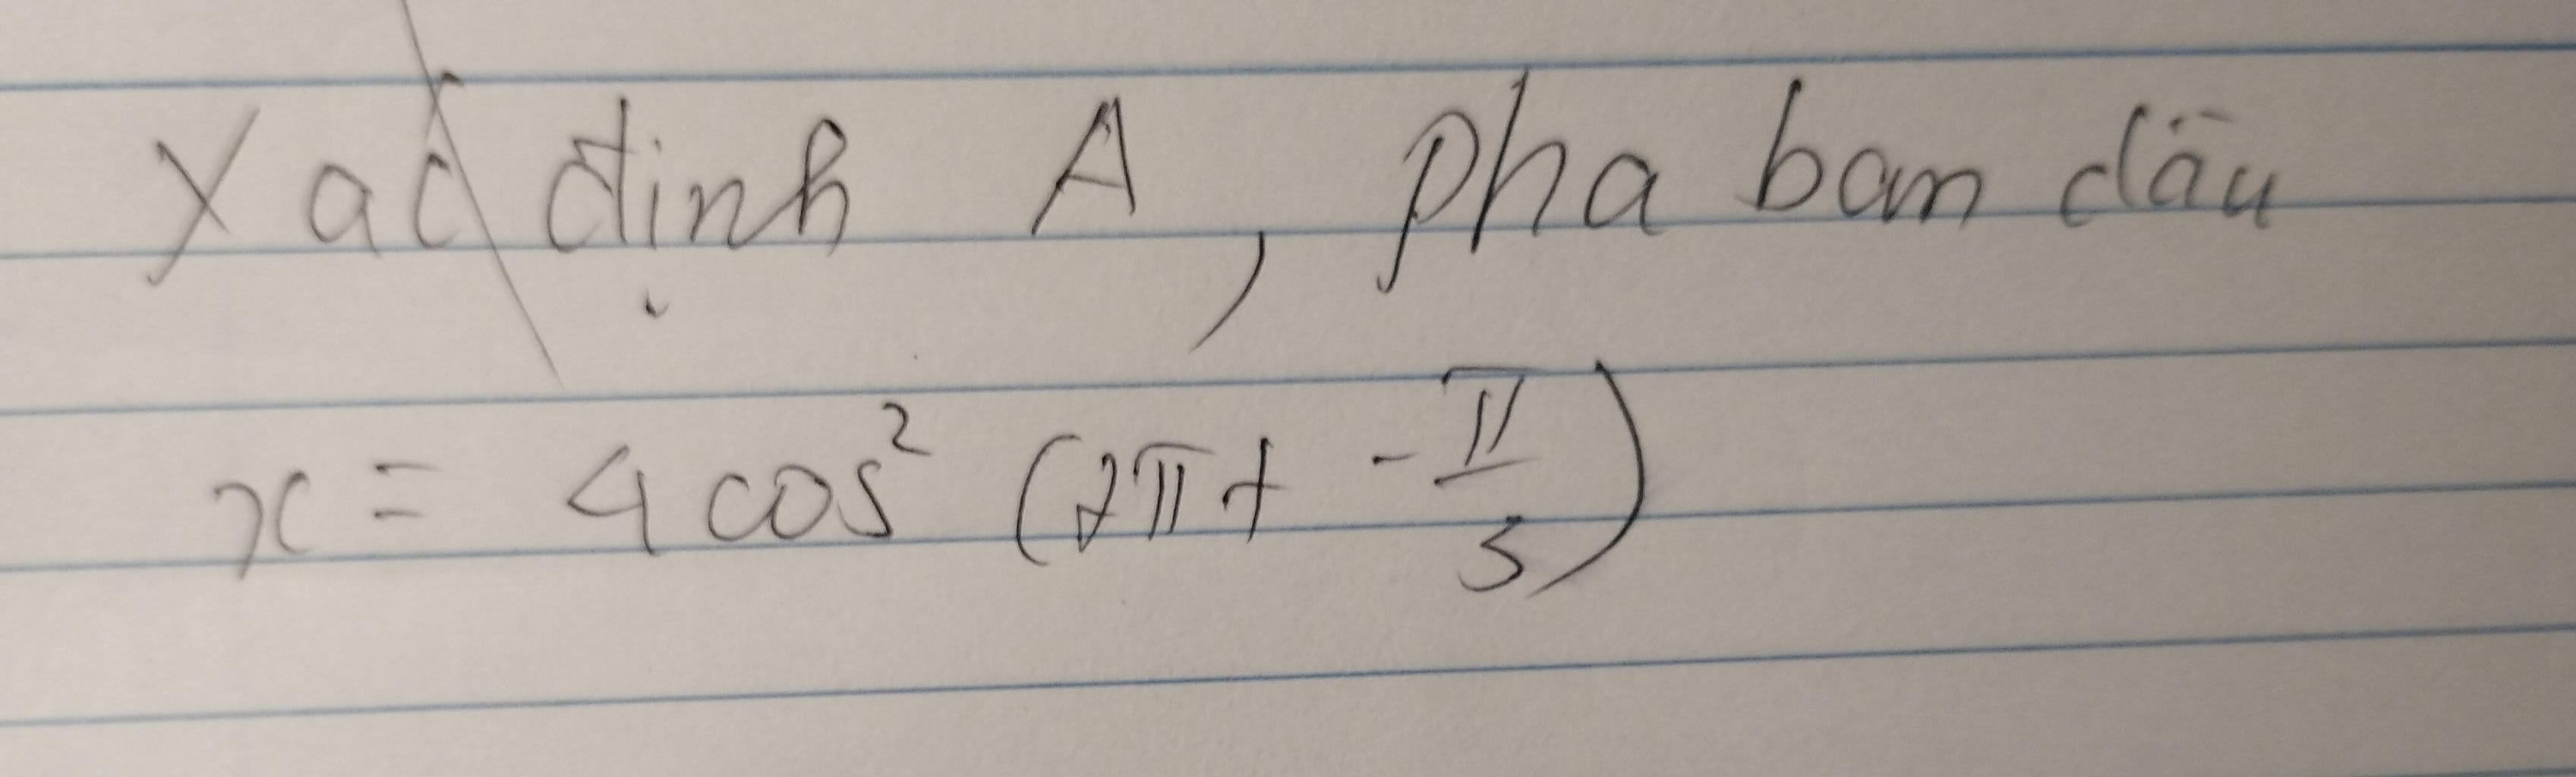 Xác định A, pha ban dầu
x = 4 cos² (2πt - π/3)